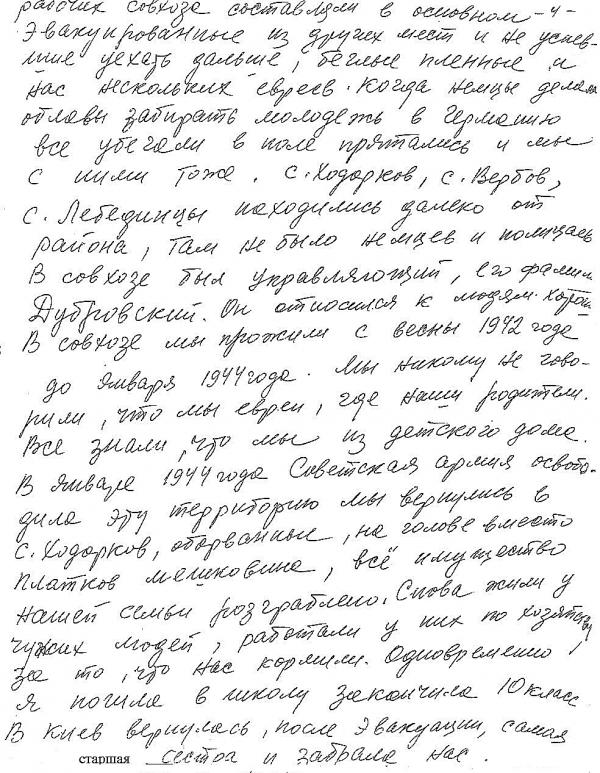 рабочих совхоза составляли в основном -4-
эвакуированные из других мест и не успев-
шие уехать дальше, беглые пленные и
нас нескольких евреев. Когда немцы делали
облавы забирать молодежь в Германию
все убегали в поле прятались и мы
с ними тоже. с. Ходорков, с. Вербов,
с. Лебединцы находились далеко от
района, там не было немцев и полицаев
В совхозе был управляющий, его фамил
Дубровский. Он относился к людям хорош
В совхозе мы прожили с весны 1942 года
до января 1944 года. Мы никому не гово-
рили, что мы евреи, где наши родители.
Все знали, что мы из детского дома.
В январе 1944 года Советская армия освобо-
дила эту территорию мы вернулись в
с. Ходорков, оборванные, на голове вместо
платков мешковина, всё имущество
нашей семьи розграблено. Снова жили у
чужих людей, работали у них по хозяйству
за то, что нас кормили. Одновременно
я пошла в школу закончила 10 класс
В Киев вернулась, после эвакуации, самая
старшая сестра и забрала нас.